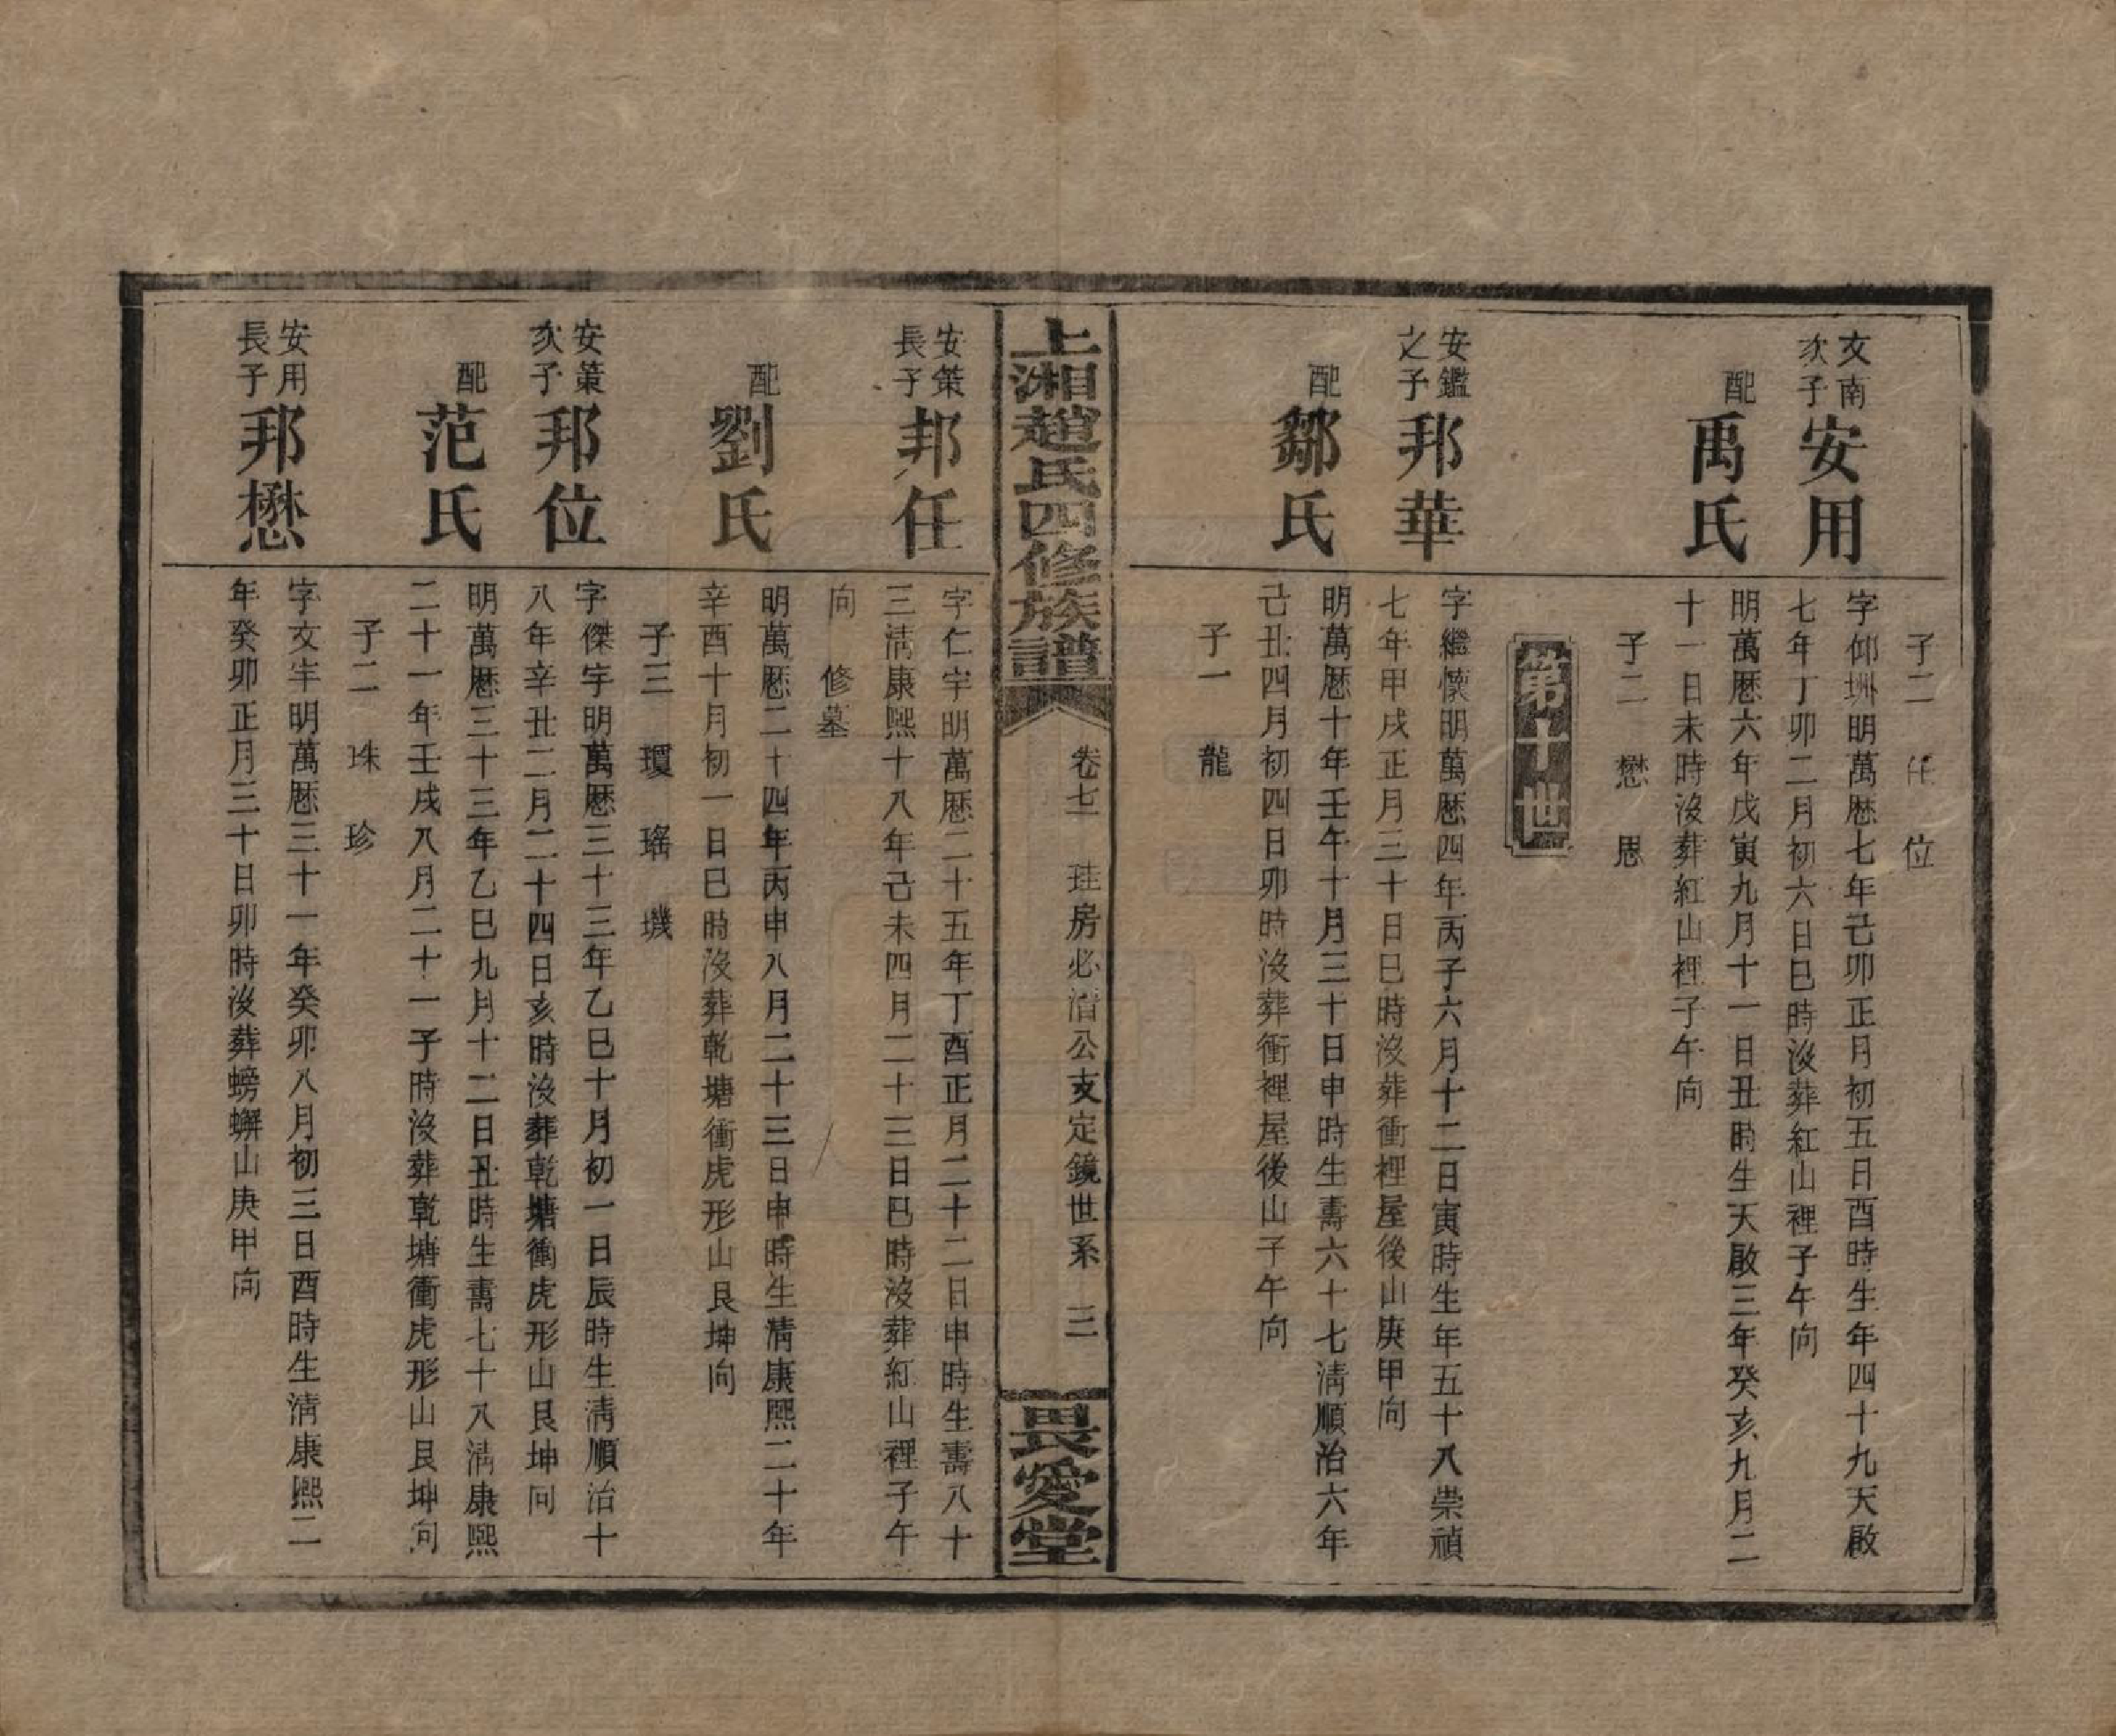 子二 任 位
文南
次子
安用
字仰州明萬歷七年己卯正月初五日酉時生年四十九天啟
七年丁卯二月初六日巳時沒葬紅山裡子午向
配
禹氏
明萬歷六年戊寅九月十一日丑時生天啟三年癸亥九月二
十一日未時沒葬紅山裡子午向
子二 懋 思
第十世
安鑑
之子
邦華
字繼懷明萬歷四年丙子六月十二日寅時生年五十八崇禎
七年甲戌正月三十日巳時沒葬衝裡屋後山庚甲向
配
鄒氏
明萬歷十年壬午十月三十日申時生壽六十七清順治六年
己丑四月初四日卯時沒葬衝裡屋後山子午向
子一 龍
上湘趙氏四修族譜
卷七 珪房必清公支定鏡世系 三
畏愛堂
安策
長子
邦任
字仁宇明萬歷二十五年丁酉正月二十二日申時生壽八十
三清康熙十八年己未四月二十三日巳時沒葬紅山裡子午
向 修墓
配
劉氏
明萬歷二十四年丙申八月二十三日申時生清康熙二十年
辛酉十月初一日巳時沒葬乾塘衝虎形山艮坤向
子三 瓊 瑤 璣
安策
次子
邦位
字傑宇明萬歷三十三年乙巳十月初一日辰時生清順治十
八年辛丑二月二十四日亥時沒葬乾塘衝虎形山艮坤向
配
范氏
明萬歷三十三年乙巳九月十二日丑時生壽七十八清康熙
二十一年壬戌八月二十一子時沒葬乾塘衝虎形山艮坤向
子二 珠 珍
安用
長子
邦懋
字文宇明萬歷三十一年癸卯八月初三日酉時生清康熙二
年癸卯正月三十日卯時沒葬螃蠏山庚甲向